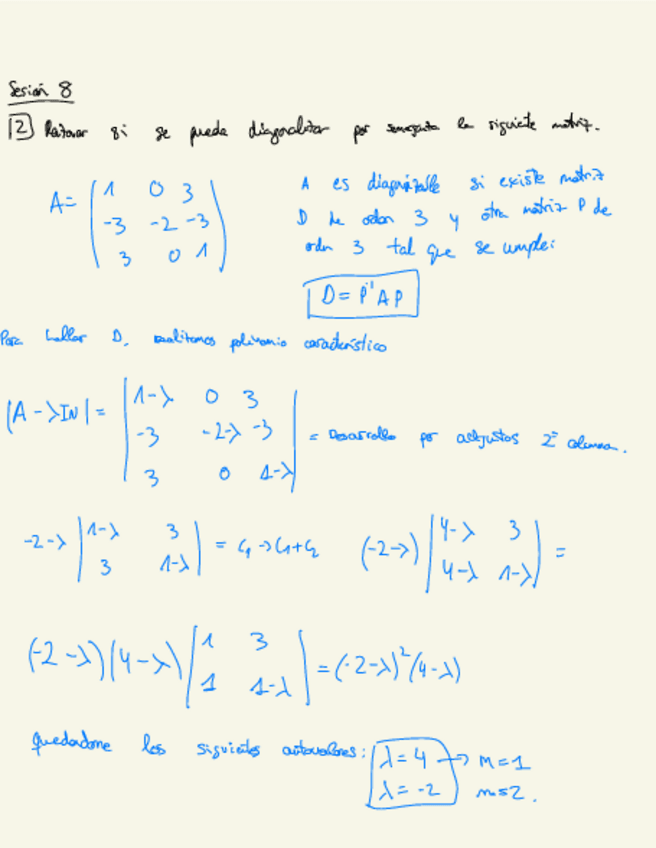 Sesión 8
[2] Razonar si se puede diagonalizar por semejanza la siguiente matriz.
A = ( 1 0 3
-3 -2 -3
3 0 1 )
A es diagonizable si existe matriz
D de orden 3 y otra matriz P de
orden 3 tal que se cumple:
D = P⁻¹AP
Para hallar D, realizamos polinomio característico
|A - λIN| = | 1-λ 0 3
-3 -2-λ -3
3 0 1-λ | = Desarrollo por adjuntos 2ª columna.
-2-λ | 1-λ 3
3 1-λ | = C₁ → C₁ + C₂ (-2-λ) | 4-λ 3
4-λ 1-λ | =
(-2-λ)(4-λ) | 1 3
1 1-λ | = (-2-λ)²(4-λ)
Quedándome los siguientes autovalores: λ = 4 → m = 1
λ = -2 m = 2.